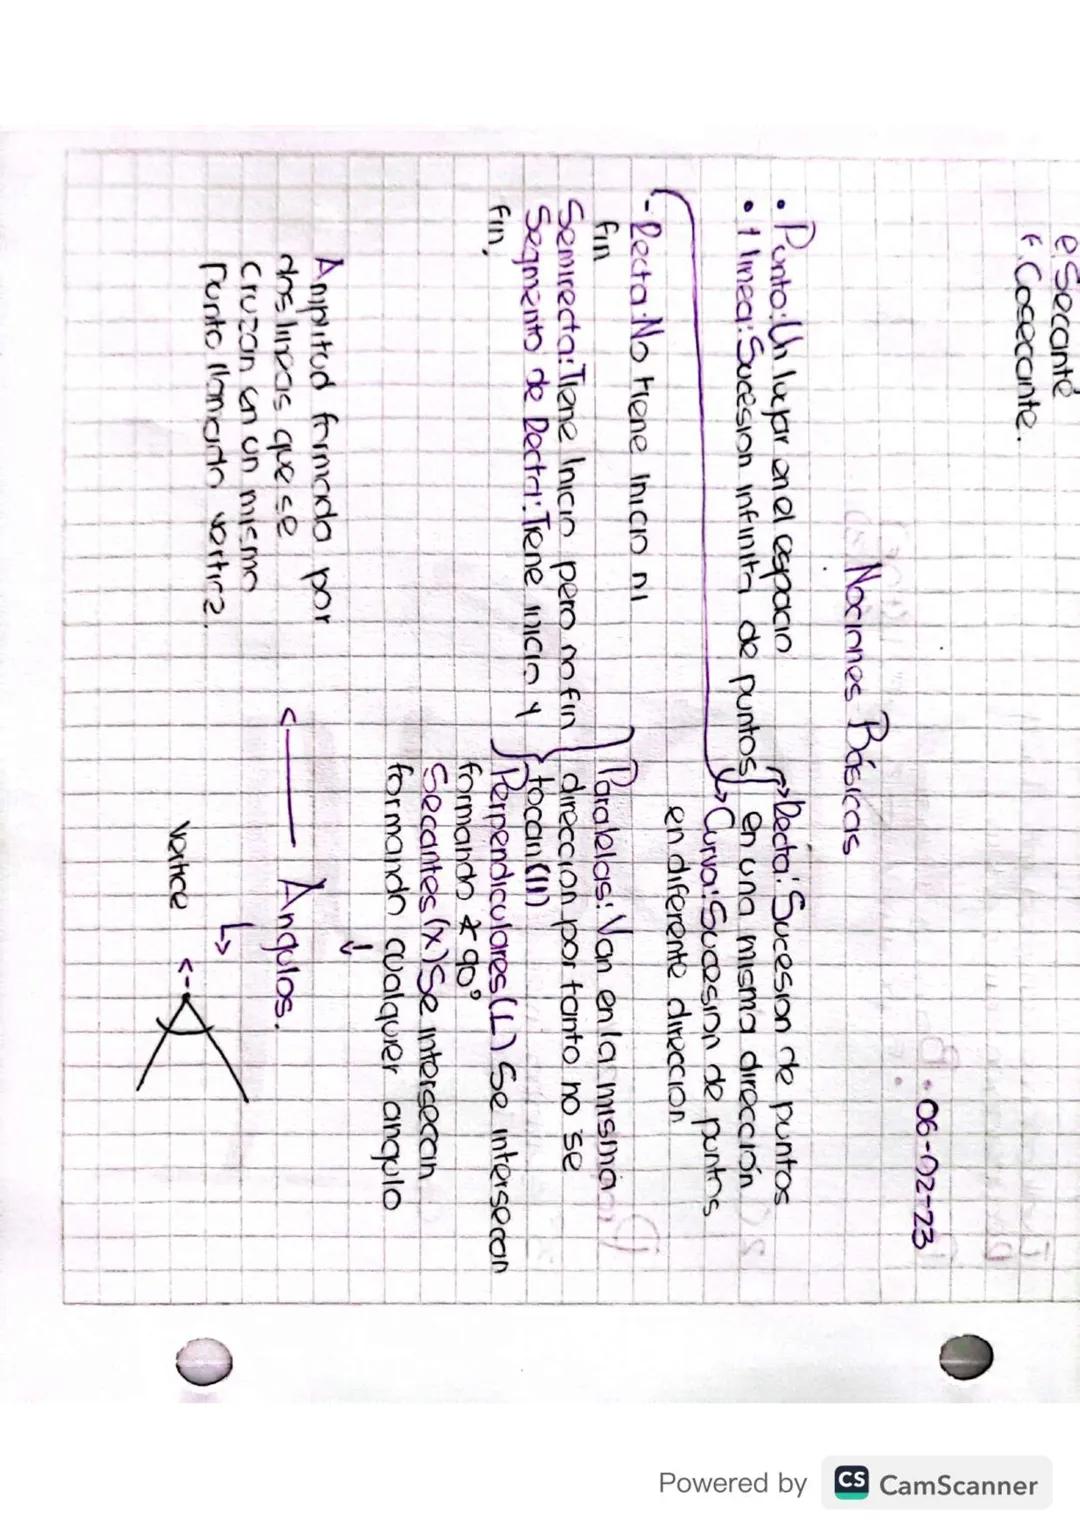 e. Secante
f. Cosecante.
• 06-02-23
Nociones Básicas
• Punto: Un lugar en el espacio
• 1 linea: Sucesion infinita de puntos
→ Recta: Sucesion de puntos
en una misma dirección
→ Curva: Sucesion de puntos
en diferente direccion
- Recta: No tiene inicio ni
fin
Semirecta: Tiene Inicio pero no fin
Segmento de Recta: Tiene inicio y
fin.
Paralelas: Van en la misma
direccion por tanto no se
tocan (II)
Perpendiculares (L) Se intersecan
formando ∡ 90°
Secantes (X) Se intersecan
formando cualquier angulo
↓
Amplitud formado por
dos lineas que se
cruzan en un mismo
punto llamado vertice.
<—— Angulos.
↳
vertice <--
Powered by CS CamScanner